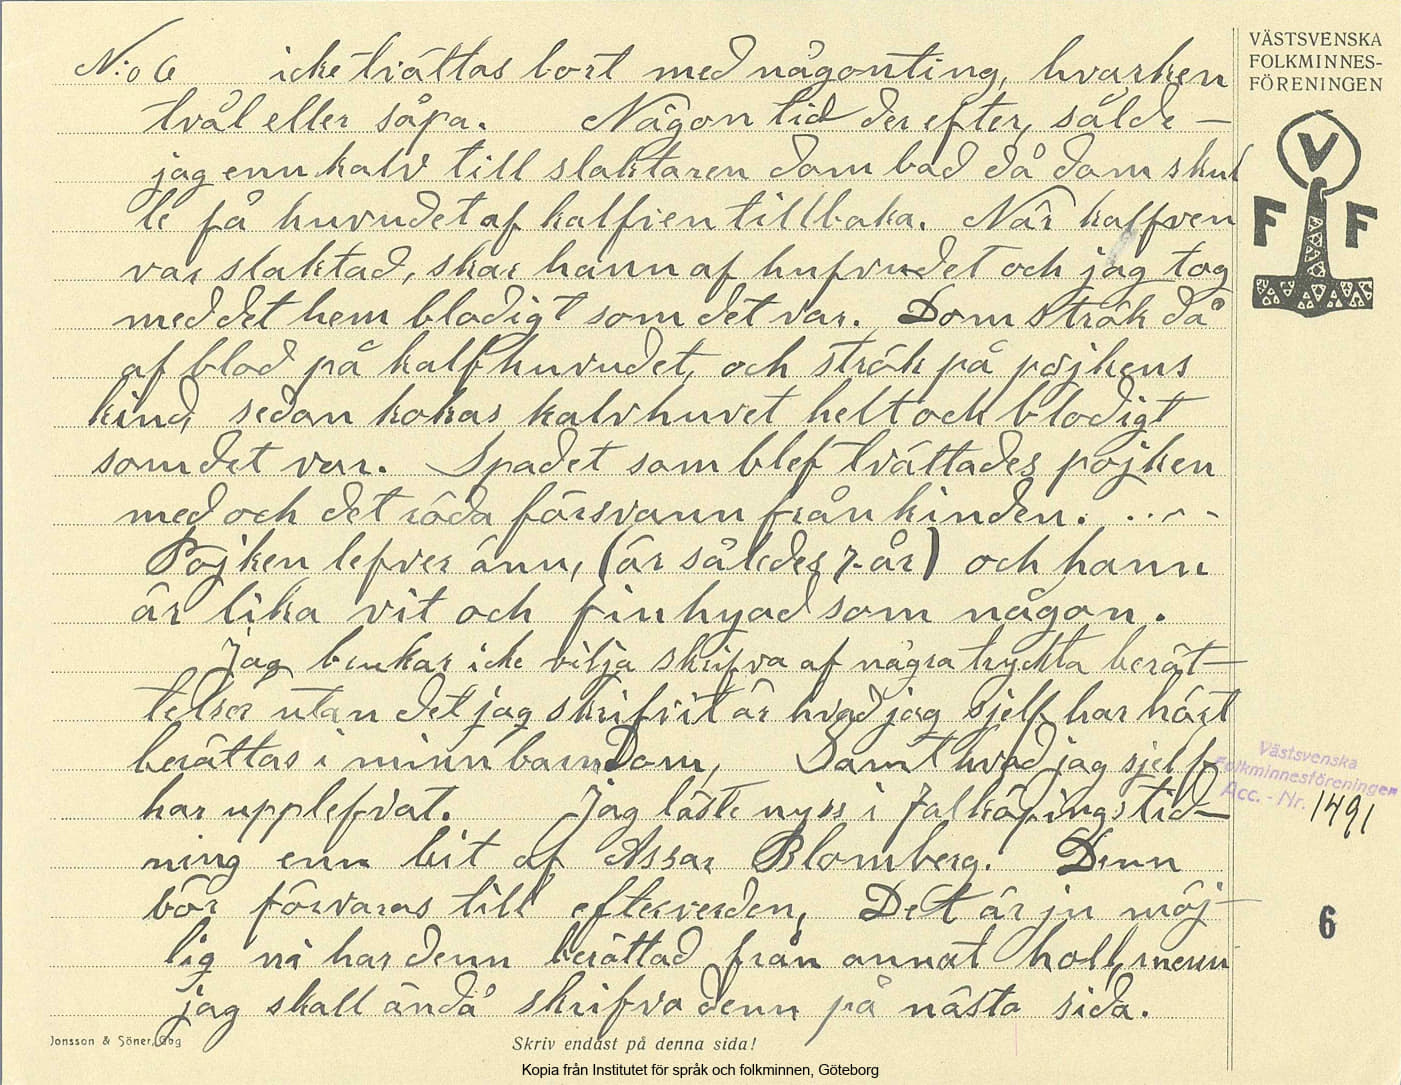 N:o 6 icke tvättas bort med någonting, hvarken
tvål eller såpa. Någon tid der efter, sålde —
jag enn kalv till slaktaren dom bad då dom skul
le få huvudet af kalfven tillbaka. Når kalfven
var slaktad, skar hann af hufvudet och jag tog
med det hem blodigt som det var. Dom strök då
af blod på kalfhuvudet, och strök på pojkens
kind, sedan kokas kalvhuvet helt och blodigt
som det var. Spadet som blef tvättades pojken
med och det röda försvann från kinden. . . - -
Pojken lefver änn, (är således 7-år) och hann
är lika vit och finhyad som någon.
Jag brukar icke vilja skrifva af några tryckta berät—
telser utan det jag skrifvit är hvad jag sjelf har hört
berättas i minn barndom, Samt hvad jag sjelf
har upplefvat. Jag läste nyss i Falköpingstid—
ning enn bit af Assar Blomberg. Denn
bör förvaras till efterverden, Det är ju möj—
lig ni har denn berättad från annat holl, menn
jag skall ändå skrifva denn på nästa sida.
VÄSTSVENSKA
FOLKMINNES-
FÖRENINGEN
V
F F
Västsvenska
Folkminnesföreningen
Acc. - Nr. 1491
6
Jonsson & Söner, Gbg
Skriv endast på denna sida!
Kopia från Institutet för språk och folkminnen, Göteborg